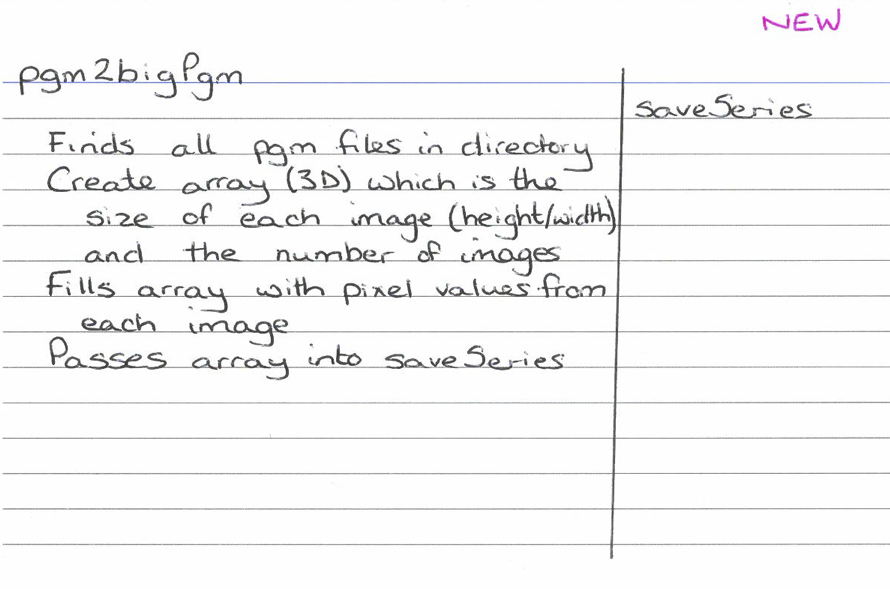 NEW
pgm2bigPgm
saveSeries
Finds all pgm files in directory
Create array (3D) which is the
size of each image (height/width)
and the number of images
Fills array with pixel values from
each image
Passes array into saveSeries